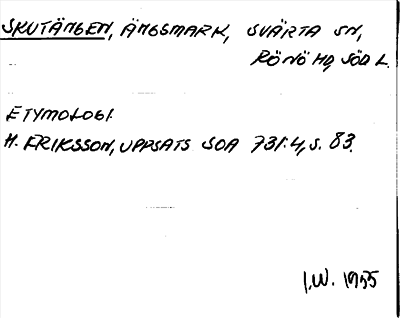 SKUTÄNGEN, ÄNGSMARK, SVÄRTA SN,
RÖNÖ HD, SÖD L.
ETYMOLOGI.
H. ERIKSSON, UPPSATS SOA 731:4, S. 83.
I.W. 1955